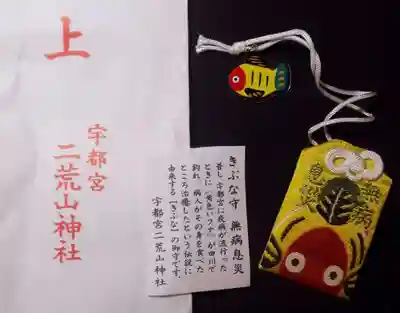 上
宇都宮
二荒山神社
きぶな守 無病息災
昔し、宇都宮に疫病が流行った
ときに「黄色いフナ」が田川で
釣れ、病人がその身を食べた
ところ治癒したという伝説に
由来する【きぶな】の御守です。
宇都宮二荒山神社
無病
息災